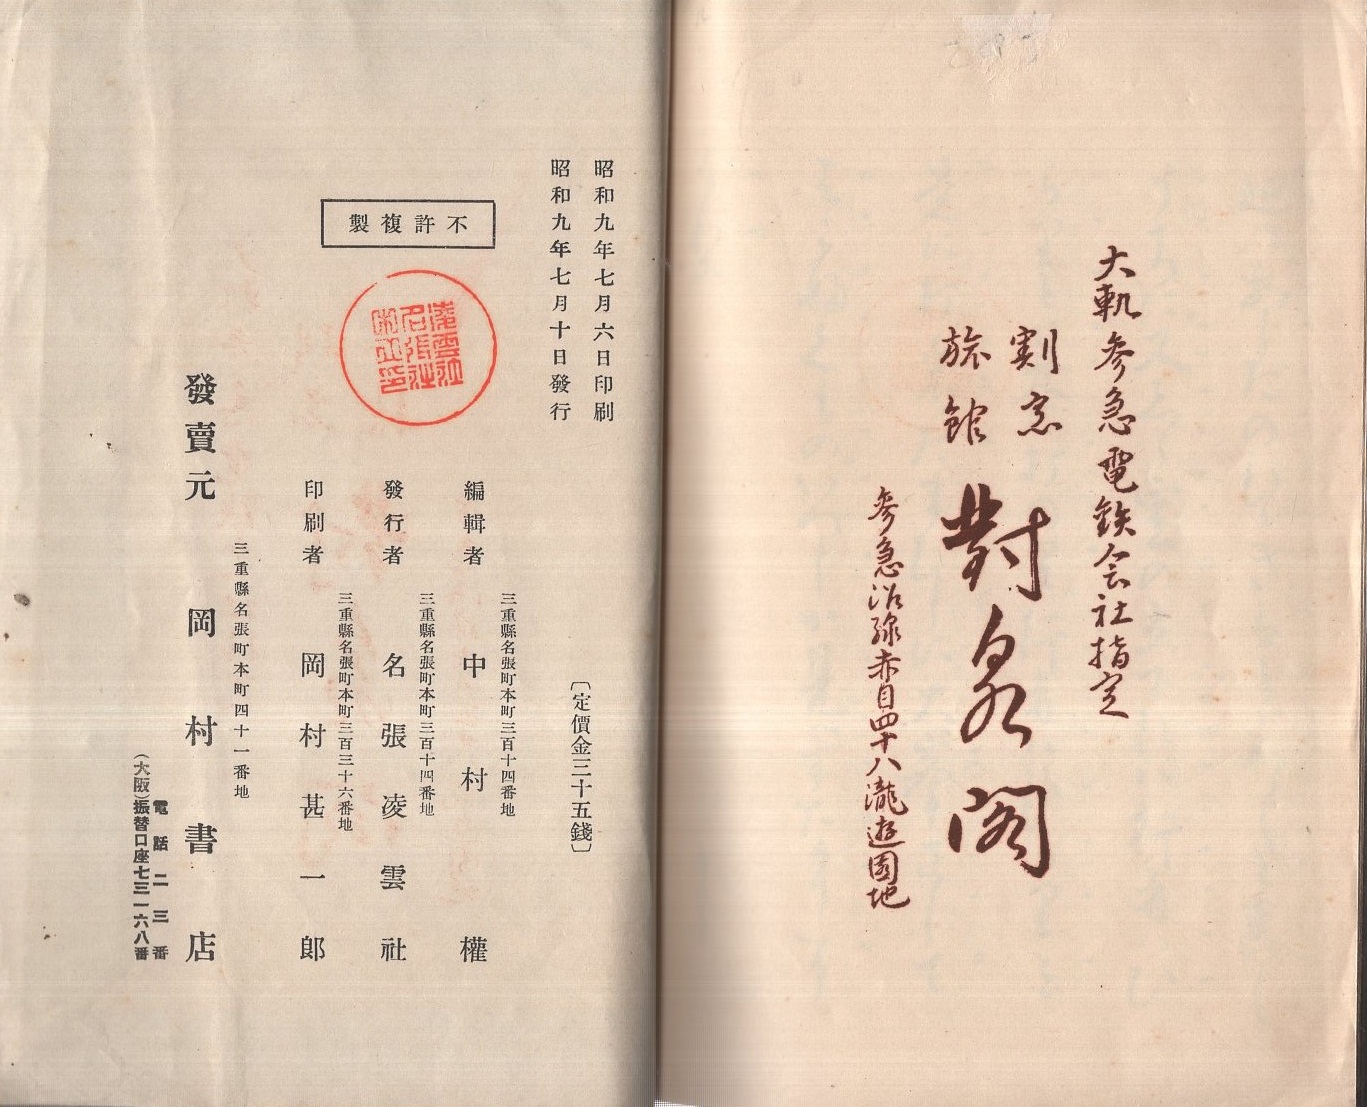 大軌参急電鉄会社指定
割烹
旅館
對泉閣
参急沿線赤目四十八瀧遊園地
昭和九年七月六日印刷
昭和九年七月十日發行
不許複製
〔定價金三十五錢〕
三重縣名張町本町三百十四番地
編輯者 中村權
三重縣名張町本町三百十四番地
發行者 名張凌雲社
三重縣名張町本町三百三十六番地
印刷者 岡村甚一郎
三重縣名張町本町四十一番地
發賣元 岡村書店
電話二三番
(大阪)振替口座七三一六八番